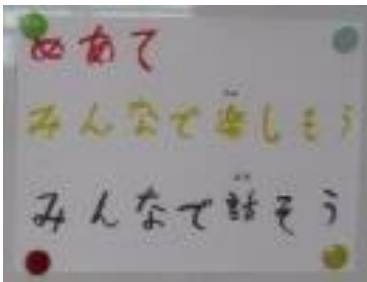 めあて
みんなで楽しもう
みんなで話そう